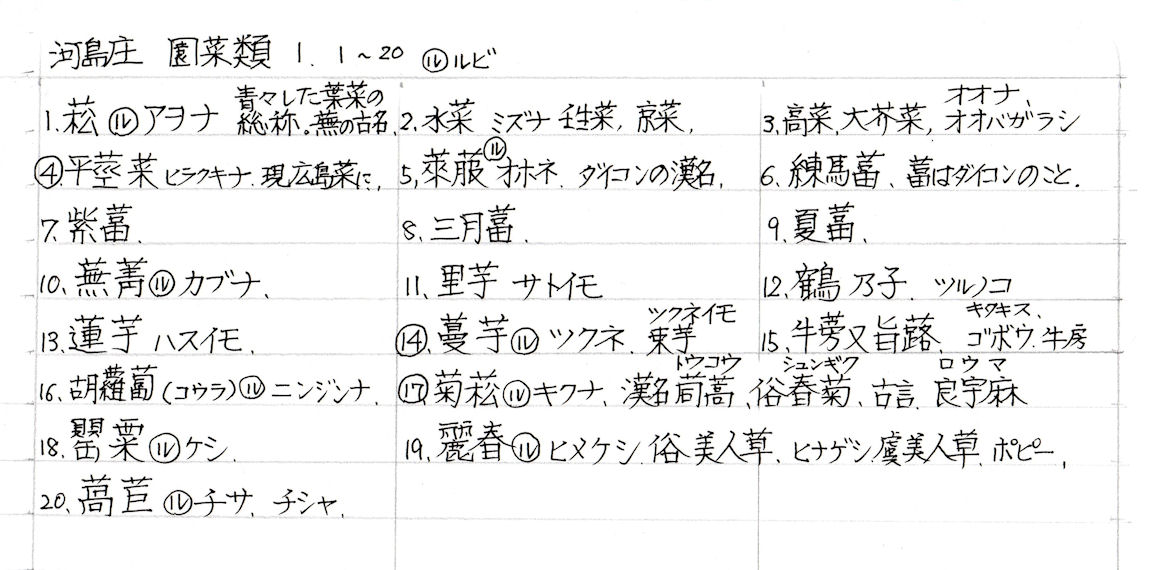 河島庄 園菜類 1. 1~20 ㋸ルビ
1. 菘 ㋸ アヲナ 青々した葉菜の総称。蕪の古名、 2. 水菜 ミズナ 壬生菜, 京菜, 3. 高菜, 大芥菜, オオナ、オオバガラシ
④. 平莖菜 ヒラクキナ. 現広島菜に, 5, 萊菔 ㋸ オホネ. ダイコンの漢名, 6. 練馬葍、葍はダイコンのこと.
7. 紫葍、 8. 三月葍. 9. 夏葍、
10、蕪菁 ㋸ カブナ、 11. 里芋 サトイモ 12. 鶴乃子. ツルノコ
13. 蓮芋 ハスイモ、 ⑭. 蔓芋 ㋸ ツクネ. ツクネイモ 束芋 15. 牛蒡又旨蕗、キタキス、ゴボウ. 牛房
16. 胡蘿蔔 (コウラ) ㋸ ニンジンナ. ⑰. 菊菘 ㋸ キクナ、漢名茼蒿 トウコウ、俗春菊 シュンギク、古言. 良宇麻 ロウマ
18. 罌粟 ㋸ ケシ. 19. 麗春 ㋸ ヒメケシ. 俗美人草、ヒナゲシ. 虞美人草、ポピー,
20. 萵苣 ㋸ チサ、チシャ、